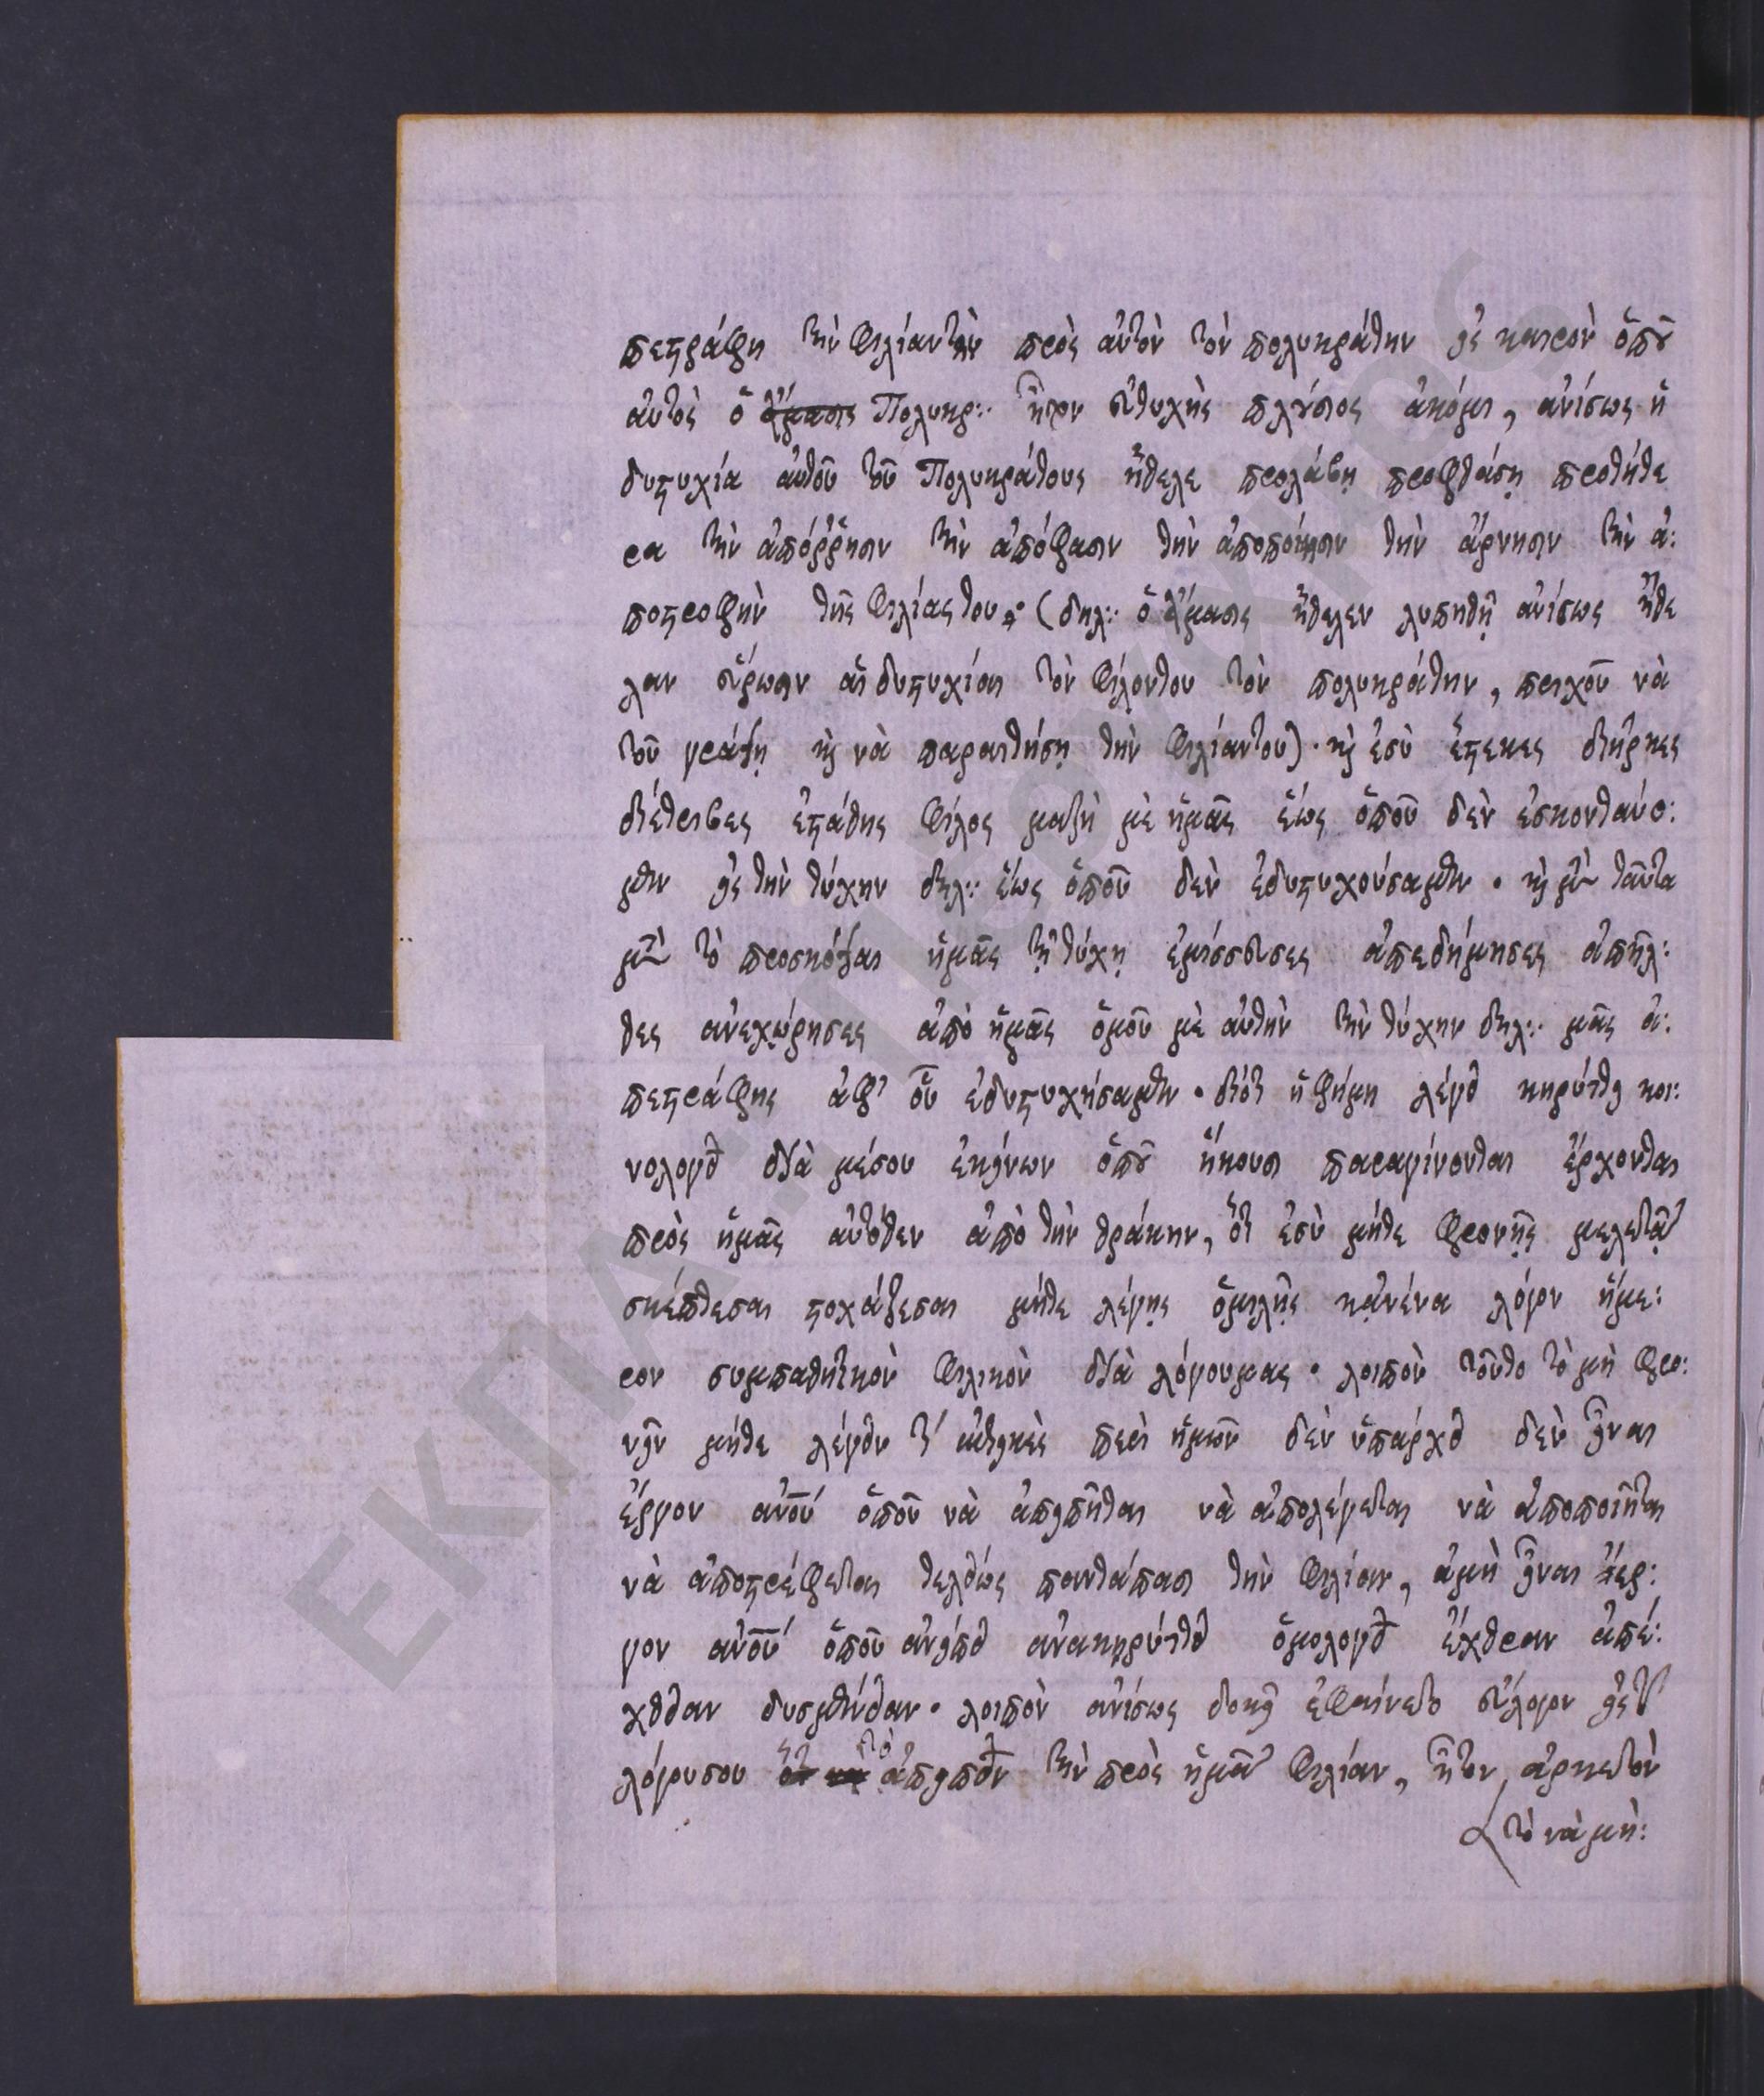 πεστράφη τὴν φιλίαντου πρὸς αὐτὸν τὸν πολυκράτην εἰς καιρὸν ὁποῦ
αὐτὸς ὁ ἄμασις Πολυκρ:· ἦτον εὐτυχὴς πλούσιος ἀκόμι, ἀνίσως ἡ
δυστυχία αὐτοῦ τοῦ Πολυκράτους ἤθελε προλάβῃ προφθάσῃ προτήτε
ρα τὴν ἀπόῤῥησιν τὴν ἀπόφασιν τὴν ἀποποίησιν τὴν ἄρνησιν τὴν ἀ:
ποστροφὴν τῆς φιλίας του· (δηλ:· ὁ ἄμασις ἤθελεν λυπηθῇ ἀνίσως ἤθε
λαν εὕρωσιν αἱ δυστυχίαι τὸν φίλοντου τὸν πολυκράτην, πριχοῦ νὰ
τοῦ γράψῃ καὶ νὰ παραιτήσῃ τὴν φιλίαντου)· καὶ ἐσὺ ἔστεκες διήρκες
διέτριβες ἐστάθης φίλος μαζὶ μὲ ἡμᾶς ἕως ὁποῦ δὲν ἐσκοντάψα:
μεν εἰς τὴν τύχην δηλ:· ἕως ὁποῦ δὲν ἐδυστυχούσαμεν· καὶ μετὰ ταῦτα
μετὰ τὸ προσκόψαι ἡμᾶς τῇ τύχῃ ἐμίσσευσες ἀπεδήμησες ἀπῆλ:
θες ἀνεχώρησες ἀπὸ ἡμᾶς ὁμοῦ μὲ αὐτὴν τὴν τύχην δηλ:· μᾶς ἀ:
πεστράφης ἀφ' οὗ ἐδυστυχήσαμεν· διότι ἡ φήμη λέγει κηρύττει κοι:
νολογεῖ διὰ μέσου ἐκείνων ὁποῦ ἥκουσι παραγίνονται ἔρχονται
πρὸς ἡμᾶς αὐτόθεν ἀπὸ τὴν θράκην, ὅτι ἐσὺ μήτε φρονῇς μελετᾷς
σκέπτεσαι στοχάζεσαι μήτε λέγῃς ὁμιλῇς κᾀνένα λόγον ἥμε:
ρον συμπαθητικὸν φιλικὸν διὰ λόγουμας· λοιπὸν τοῦτο τὸ μὴ φρο:
νεῖν μήτε λέγειν τὶ ἐπιεικὲς περὶ ἡμῶν δὲν ὑπάρχει δὲν εἶναι
ἔργον ἀνθρώπου ὁποῦ νὰ ἀπειπῆται νὰ ἀπολέγεται νὰ ἀποποιῆται
νὰ ἀποστρέφεται τελείως παντάπασι τὴν φιλίαν, ἀμὴ εἶναι ἔρ:
γον ἀνθρώπου ὁποῦ ἀνείπει ἀνακηρύττει ὁμολογεῖ ἔχθραν ἀπέ:
χθειαν δυσμένειαν· λοιπὸν ἀνίσως δοκεῖ ἐφαίνετο εὔλογον εἰς τοῦ
λόγουσου τὸ ἀπειπεῖν τὴν πρὸς ἡμᾶς φιλίαν, ἦτον ἀρκετὸν
τὸ νὰ μὴ: